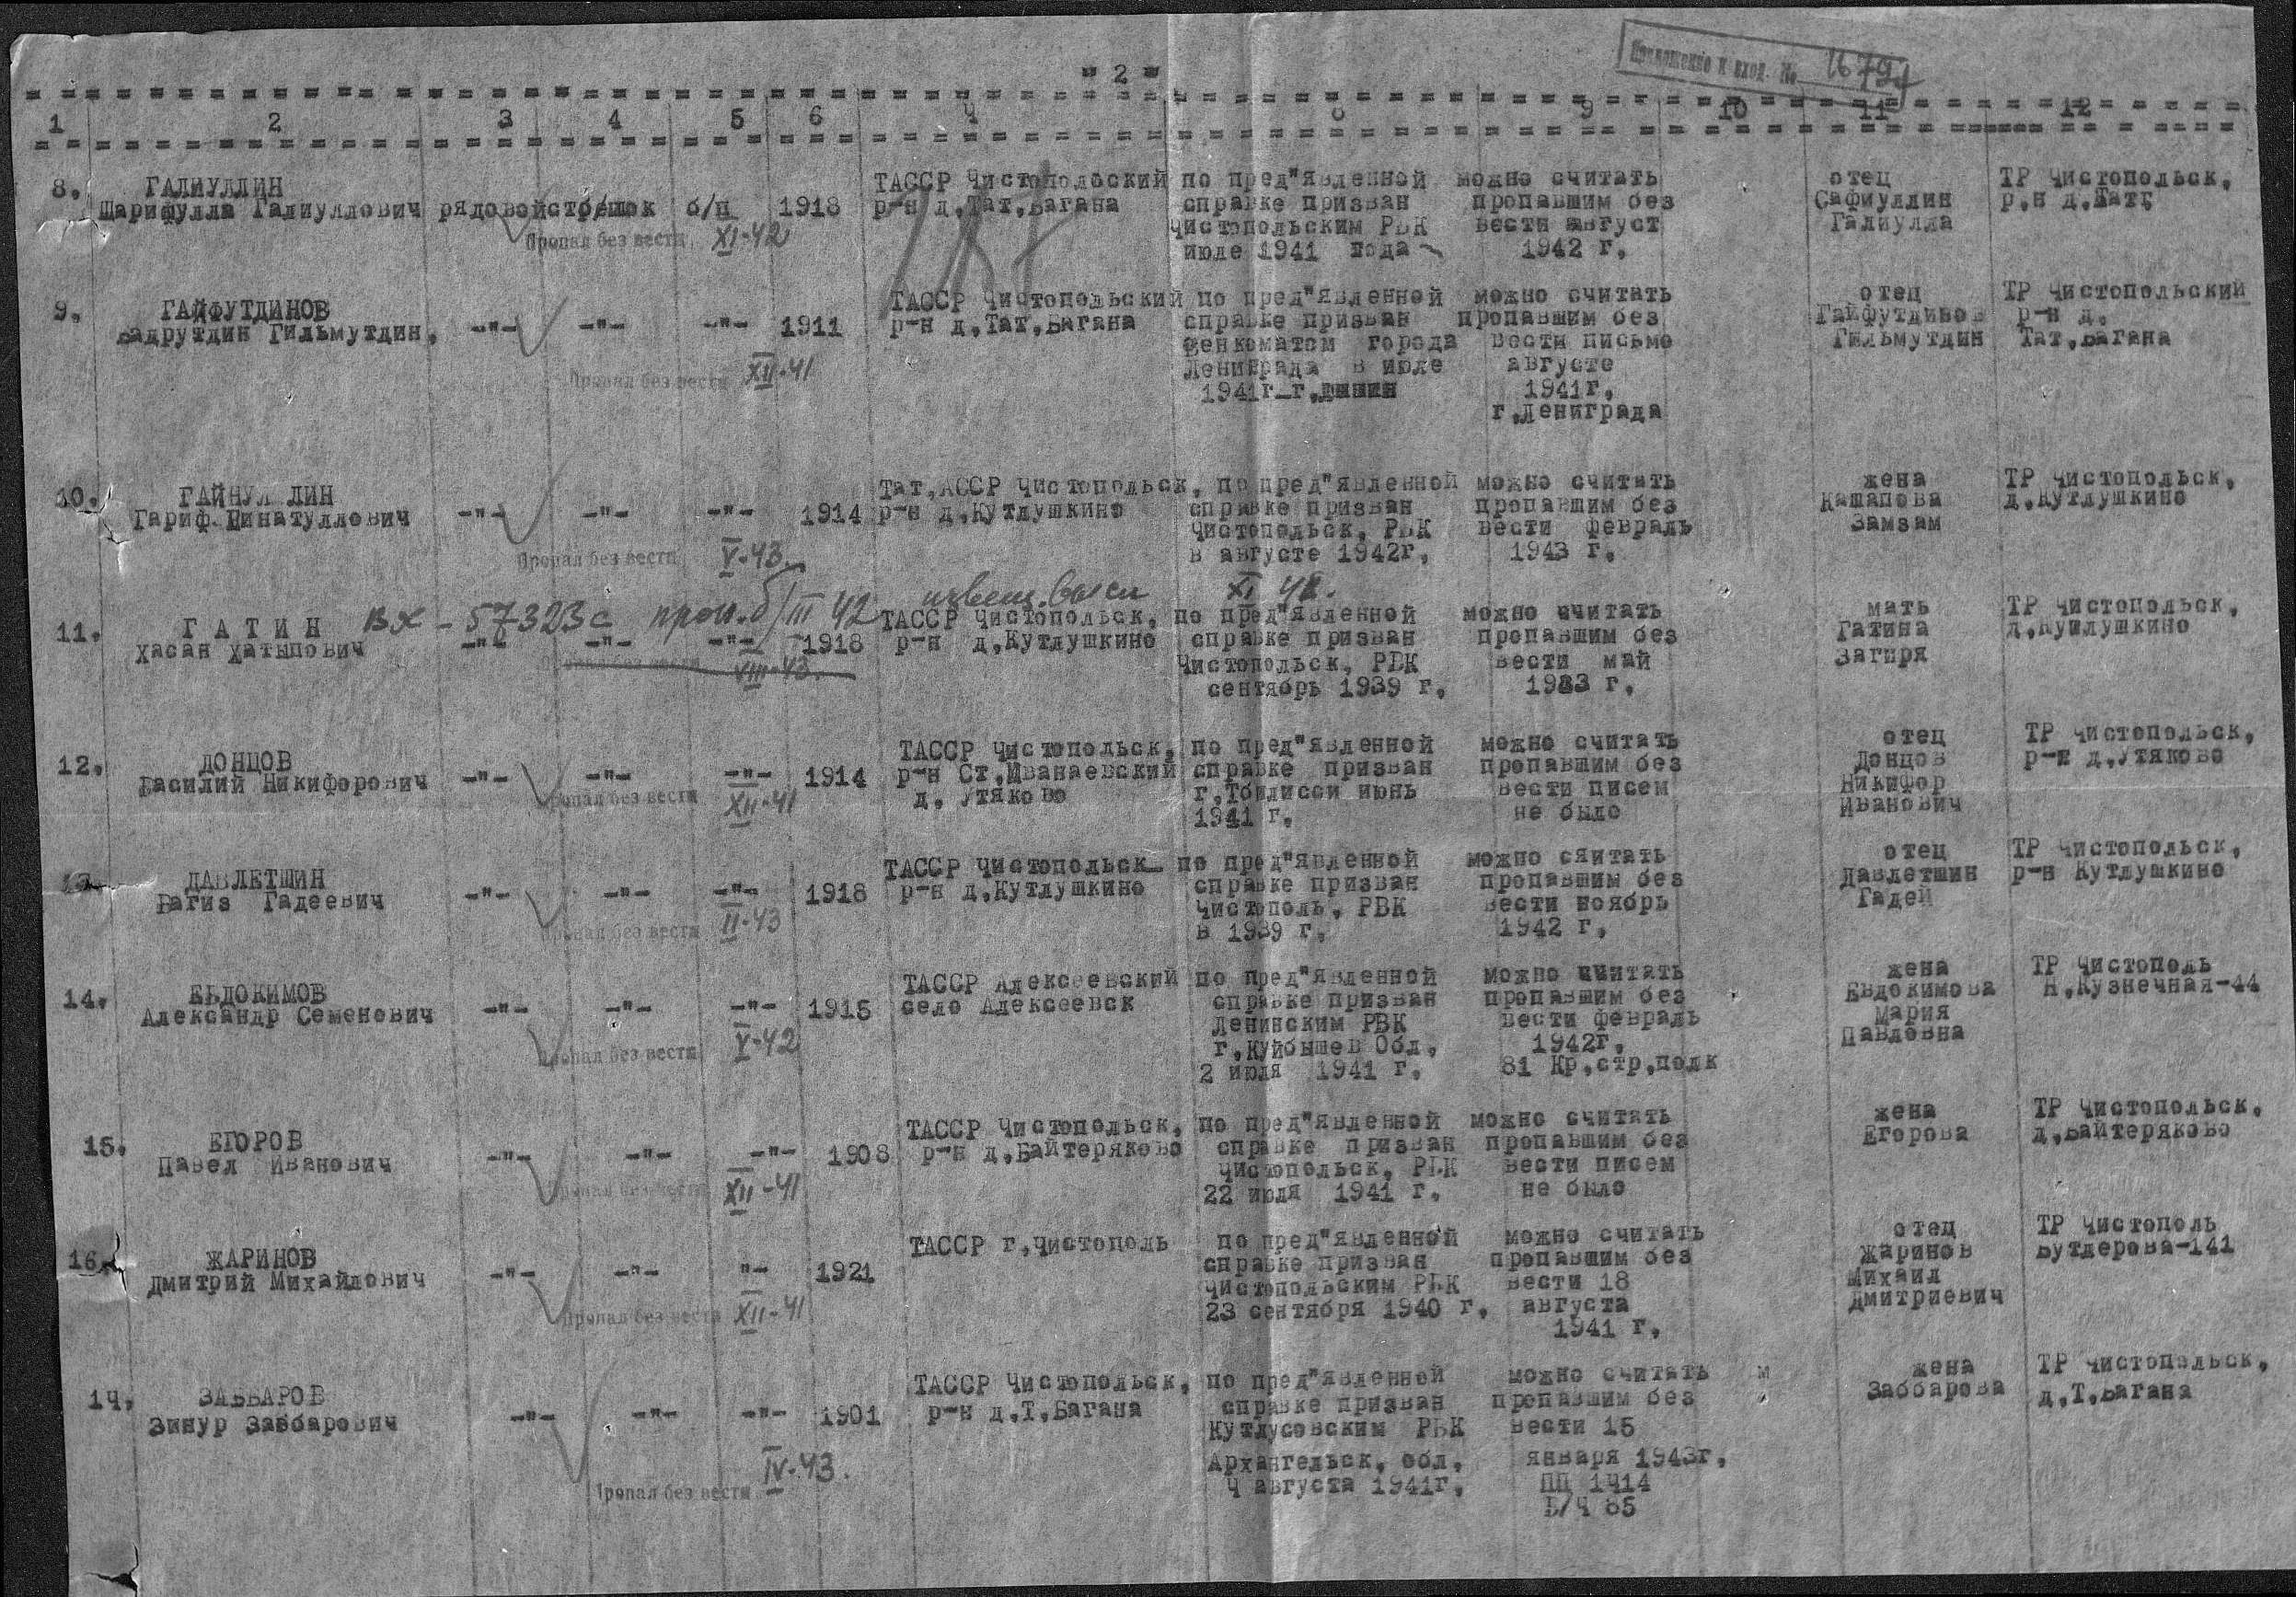 Приложение к вход. №
" 2 "
1 2 3 4 5 6 Ч 8 9 10 11 12
8. ГАЛИУЛЛИН
Шарифулла Галиуллович рядовой б/п 1918
Пропал без вести XI-42
ТАССР Чистопольский
р-н д.Тат.Багана
по пред"явленной
справке призван
Чистопольским РВК
июле 1941 года
можно считать
пропавшим без
вести август
1942 г.
отец
Сафиуллин
Галиулла
ТР Чистопольск.
9. ГАЙФУТДИНОВ
Бадрутдин Гильмутдин. -"- -"- -"- 1911
Пропал без вести XII-41
ТАССР Чистопольский
р-н д.Тат.Багана
по пред"явленной
справке призван
Венкоматом города
Лениграда в июле
1941г
можно считать
пропавшим без
вести письмо
августе
1941г.
г.Лениграда
отец
Гайфутдинов
Гильмутдин
ТР Чистопольский
р-н д.
Тат.Багана
10. ГАЙНУЛЛИН
Гариф Гинатуллович -"- -"- -"- 1914
Пропал без вести V-43
Тат.АССР Чистопольск.
р-н д.Кутлушкино
по пред"явленной
справке призван
Чистопольск. РВК
в августе 1942г.
можно считать
пропавшим без
вести февраль
1943 г.
жена
Кашапова
Замзам
ТР Чистопольск.
д.Кутлушкино
вх - 57323с проп.б/ III 42 извещ. высл XI 48.
11. Г А Т И Н
Хасан Хатыпович -"- -"- -"- 1918
Пропал без вести VIII-43.
ТАССР Чистопольск.
р-н д.Кутлушкино
по пред"явленной
справке призван
Чистопольск. РВК
сентябрь 1939 г.
можно считать
пропавшим без
вести май
1983 г.
мать
Гатина
Загиря
ТР Чистопольск.
12. ДОНЦОВ
Василий Никифорович -"- -"- -"- 1914
Пропал без вести XII-41
ТАССР Чистопольск.
р-н Ст.Иванаевский
д. Утяково
по пред"явленной
справке призван
г.Тбилисси июнь
1941 г.
можно считать
пропавшим без
вести писем
не было
отец
Донцов
Никифор
Иванович
ТР Чистопольск.
р-н д.Утяково
13. ДАВЛЕТШИН
Вагиз Гадеевич -"- -"- -"- 1918
Пропал без вести II-43
ТАССР Чистопольск-
р-н д.Кутлушкино
по пред"явленной
справке призван
Чистополь. РВК
в 1939 г.
можно сяитать
пропавшим без
вести ноябрь
1942 г.
отец
Давлетшин
Гадей
ТР Чистопольск.
р-н Кутлушкино
14. ЕВДОКИМОВ
Александр Семенович -"- -"- -"- 1915
Пропал без вести V-42
ТАССР Алексеевский
село Алексеевск
по пред"явленной
справке призван
Ленинским РВК
г.Куйбышев Обл.
2 июля 1941 г.
можно считать
пропавшим без
вести февраль
1942г.
81 Кр.стр.полк
жена
Евдокимова
Мария
Павловна
ТР Чистополь
Н.Кузнечная-44
15. ЕГОРОВ
Павел Иванович -"- -"- -"- 1908
Пропал без вести XII-41
ТАССР Чистопольск.
р-н д.Байтеряково
по пред"явленной
справке призван
Чистопольск. РВК
22 июля 1941 г.
можно считать
пропавшим без
вести писем
не было
жена
Егорова
ТР Чистопольск.
д.Байтеряково
16. ЖАРИНОВ
Дмитрий Михайлович -"- -"- "- 1921
Пропал без вести XII-41
ТАССР г.Чистополь
по пред"явленной
справке призван
Чистопольским РВК
23 сентября 1940 г.
можно считать
пропавшим без
вести 18
августа
1941 г.
отец
Жаринов
Михаил
Дмитриевич
ТР Чистополь
Бутлерова-141
1Ч. ЗАББАРОВ
Зинур Заббарович -"- -"- -"- 1901
Пропал без вести IV-43.
ТАССР Чистопольск.
р-н д.Т.Багана
по пред"явленной
справке призван
Кутлусовским РВК
Архангельск. обл.
Ч августа 1941г.
можно считать
пропавшим без
вести 15
января 1943г.
ПП 1Ч14
В/Ч 85
м
жена
Заббарова
ТР Чистопольск.
д.Т.Багана